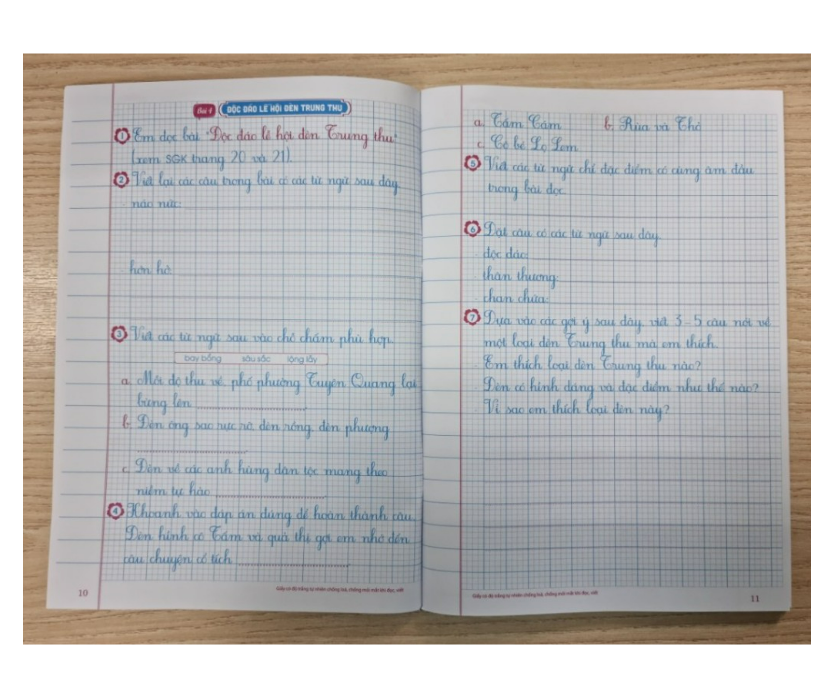 Bài 4 ĐỘC ĐÁO LỄ HỘI ĐÈN TRUNG THU
1 Em đọc bài "Độc đáo lễ hội đèn Trung thu"
(xem SGK trang 20 và 21).
2 Viết lại các câu trong bài có các từ ngữ sau đây
náo nức:
hớn hở:
3 Viết các từ ngữ sau vào chỗ chấm phù hợp.
bay bổng sâu sắc lộng lẫy
a. Mỗi độ thu về, phố phường Tuyên Quang lại
bừng lên
b. Đèn ông sao rực rỡ, đèn rồng, đèn phượng
c. Đèn về các anh hùng dân tộc mang theo
niềm tự hào
4 Khoanh vào đáp án đúng để hoàn thành câu.
Đèn hình cô Tấm và quả thị gợi em nhớ đến
câu chuyện cổ tích
10
Giấy có độ trắng tự nhiên chống loá, chống mỏi mắt khi đọc, viết
a. Tấm Cám b. Rùa và Thỏ
c. Cô bé Lọ Lem
5 Viết các từ ngữ chỉ đặc điểm có cùng âm đầu
trong bài đọc.
6 Đặt câu có các từ ngữ sau đây.
độc đáo:
thân thương:
chan chứa:
7 Dựa vào các gợi ý sau đây, viết 3 - 5 câu nói về
một loại đèn Trung thu mà em thích.
Em thích loại đèn Trung thu nào?
Đèn có hình dáng và đặc điểm như thế nào?
Vì sao em thích loại đèn này?
Giấy có độ trắng tự nhiên chống loá, chống mỏi mắt khi đọc, viết
11